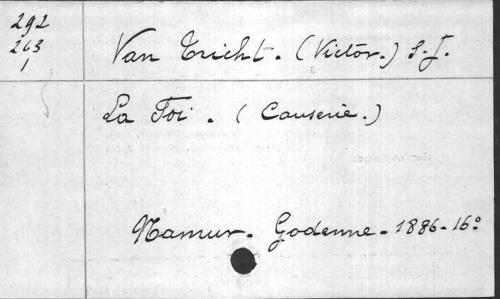 292
263
1
Van Tricht. (Victor.) S.J.
La Foi. (Causerie.)
Namur. Godenne. 1886. 16º